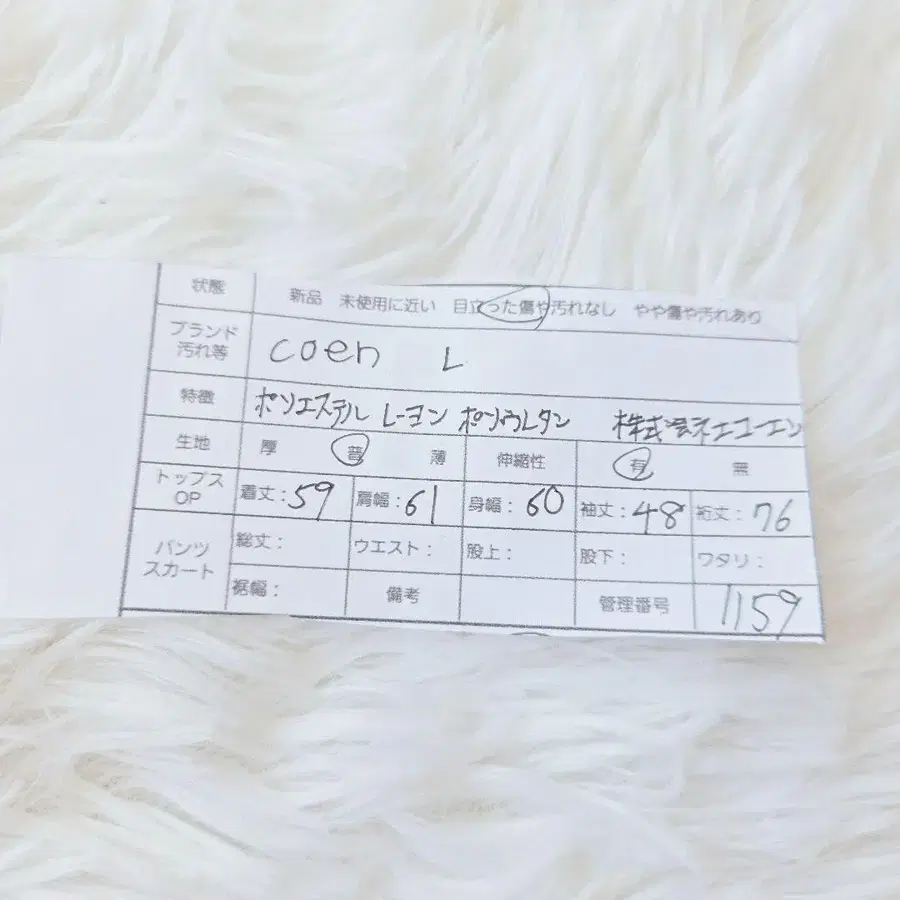 状態 新品 未使用に近い 目立った傷や汚れなし やや傷や汚れあり
ブランド 汚れ等 coen L
特徴 ポリエステル レーヨン ポリウレタン 株式会社コーエン
生地 厚 普 薄 伸縮性 有 無
トップス OP 着丈：59 肩幅：61 身幅：60 袖丈：48 裄丈：76
パンツ スカート 総丈： ウエスト： 股上： 股下： ワタリ：
裾幅： 備考 管理番号 1159